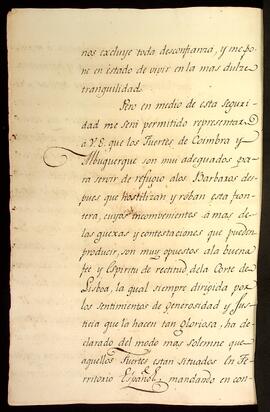 nos excluye toda desconfianza, y me po
ne en estado de vivir en la mas dulze
tranquilidad.
Pero en medio de esta seguri
dad me será permitido representar
á V.E. que los Fuertes de Coimbra y
Albuquerque son mui adequados pa
ra servir de refugio alos Barbaros des
pues que hostilizan y roban esta fron
tera, cuyos incombenientes á mas de
las quexas y contestaciones que pueden
producir, son muy opuestos ala buena
fee y Espiritu de rectitud, dela Corte de
Lisboa, la qual siempre dirigida por
los sentimientos de Generosidad y Jus
ticia que la hacen tan gloriosa, ha de
clarado del modo mas solemne que
aquellos Fuertes estan situados En Te
rritorio Español, mandando en con